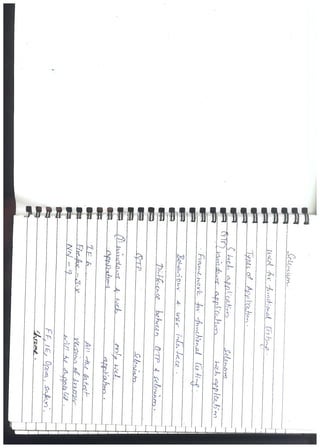 Selenium
Used for functional testing.
Types of Application.
web application Selenium
(QTP) windows application web application
Framework for functional testing
Behaviour & user interface.
Difference between QTP & selenium.
QTP Selenium
(1) windows & web only web
applications application.
I.E 6 All the latest
Firefox version of browser
NN - 9 will be supported
FF, IE, Opera, safari,
chrome.